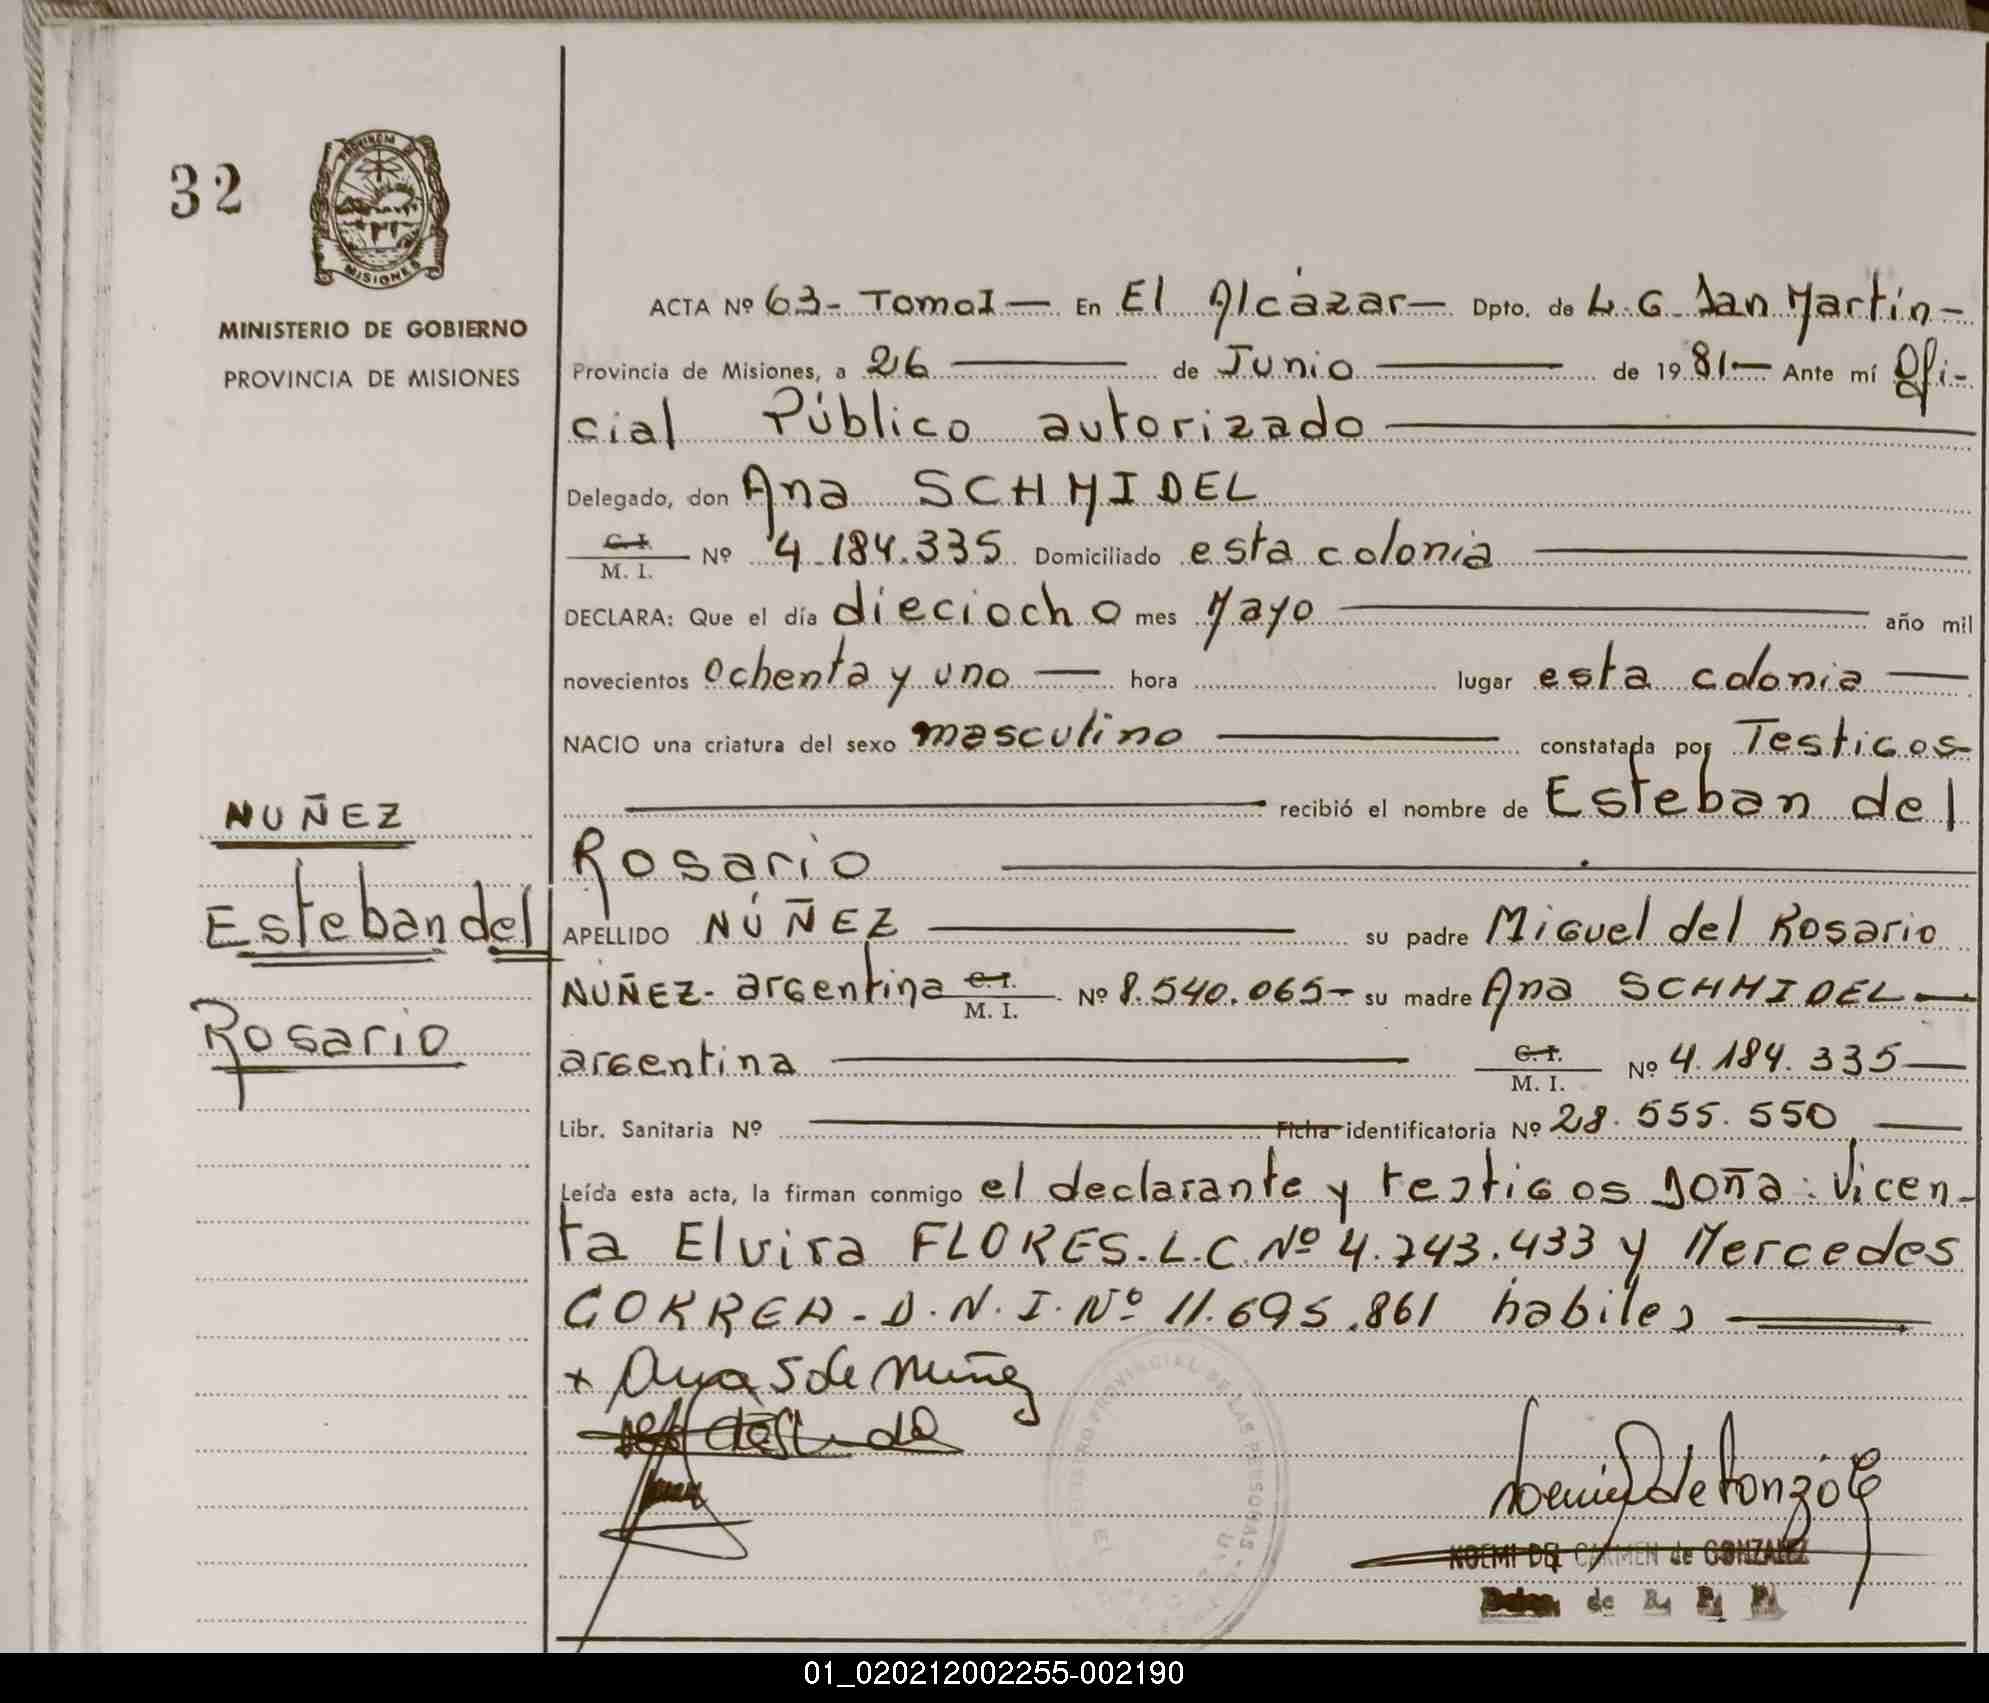 32
MINISTERIO DE GOBIERNO
PROVINCIA DE MISIONES
NUÑEZ
Esteban del
Rosario
ACTA Nº 63- Tomo I — En El Alcázar — Dpto. de L. G. San Martín -
Provincia de Misiones, a 26 de Junio de 1981 — Ante mí Ofi-
cial Público autorizado
Delegado, don Ana SCHMIDEL
C. I. M. I. Nº 4.184.335 Domiciliado esta colonia
DECLARA: Que el día dieciocho mes Mayo año mil
novecientos ochenta y uno — hora lugar esta colonia —
NACIO una criatura del sexo masculino constatada por Testigos
recibió el nombre de Esteban del
Rosario
APELLIDO NÚÑEZ su padre Miguel del Rosario
NUÑEZ- argentina C. I. M. I. Nº 8.540.065- su madre Ana SCHMIDEL —
argentina C. I. M. I. Nº 4.184.335 —
Libr. Sanitaria Nº Ficha identificatoria Nº 28.555.550 —
Leída esta acta, la firman conmigo el declarante y testigos Doña: Vicen-
ta Elvira FLORES. L.C. Nº 4.243.433 y Mercedes
CORREA - D.N.I. Nº 11.695.861 habiles
x Ana S de Nuñez
NOEMI DEL CARMEN de GONZALEZ
de R. P. P.
01_020212002255-002190